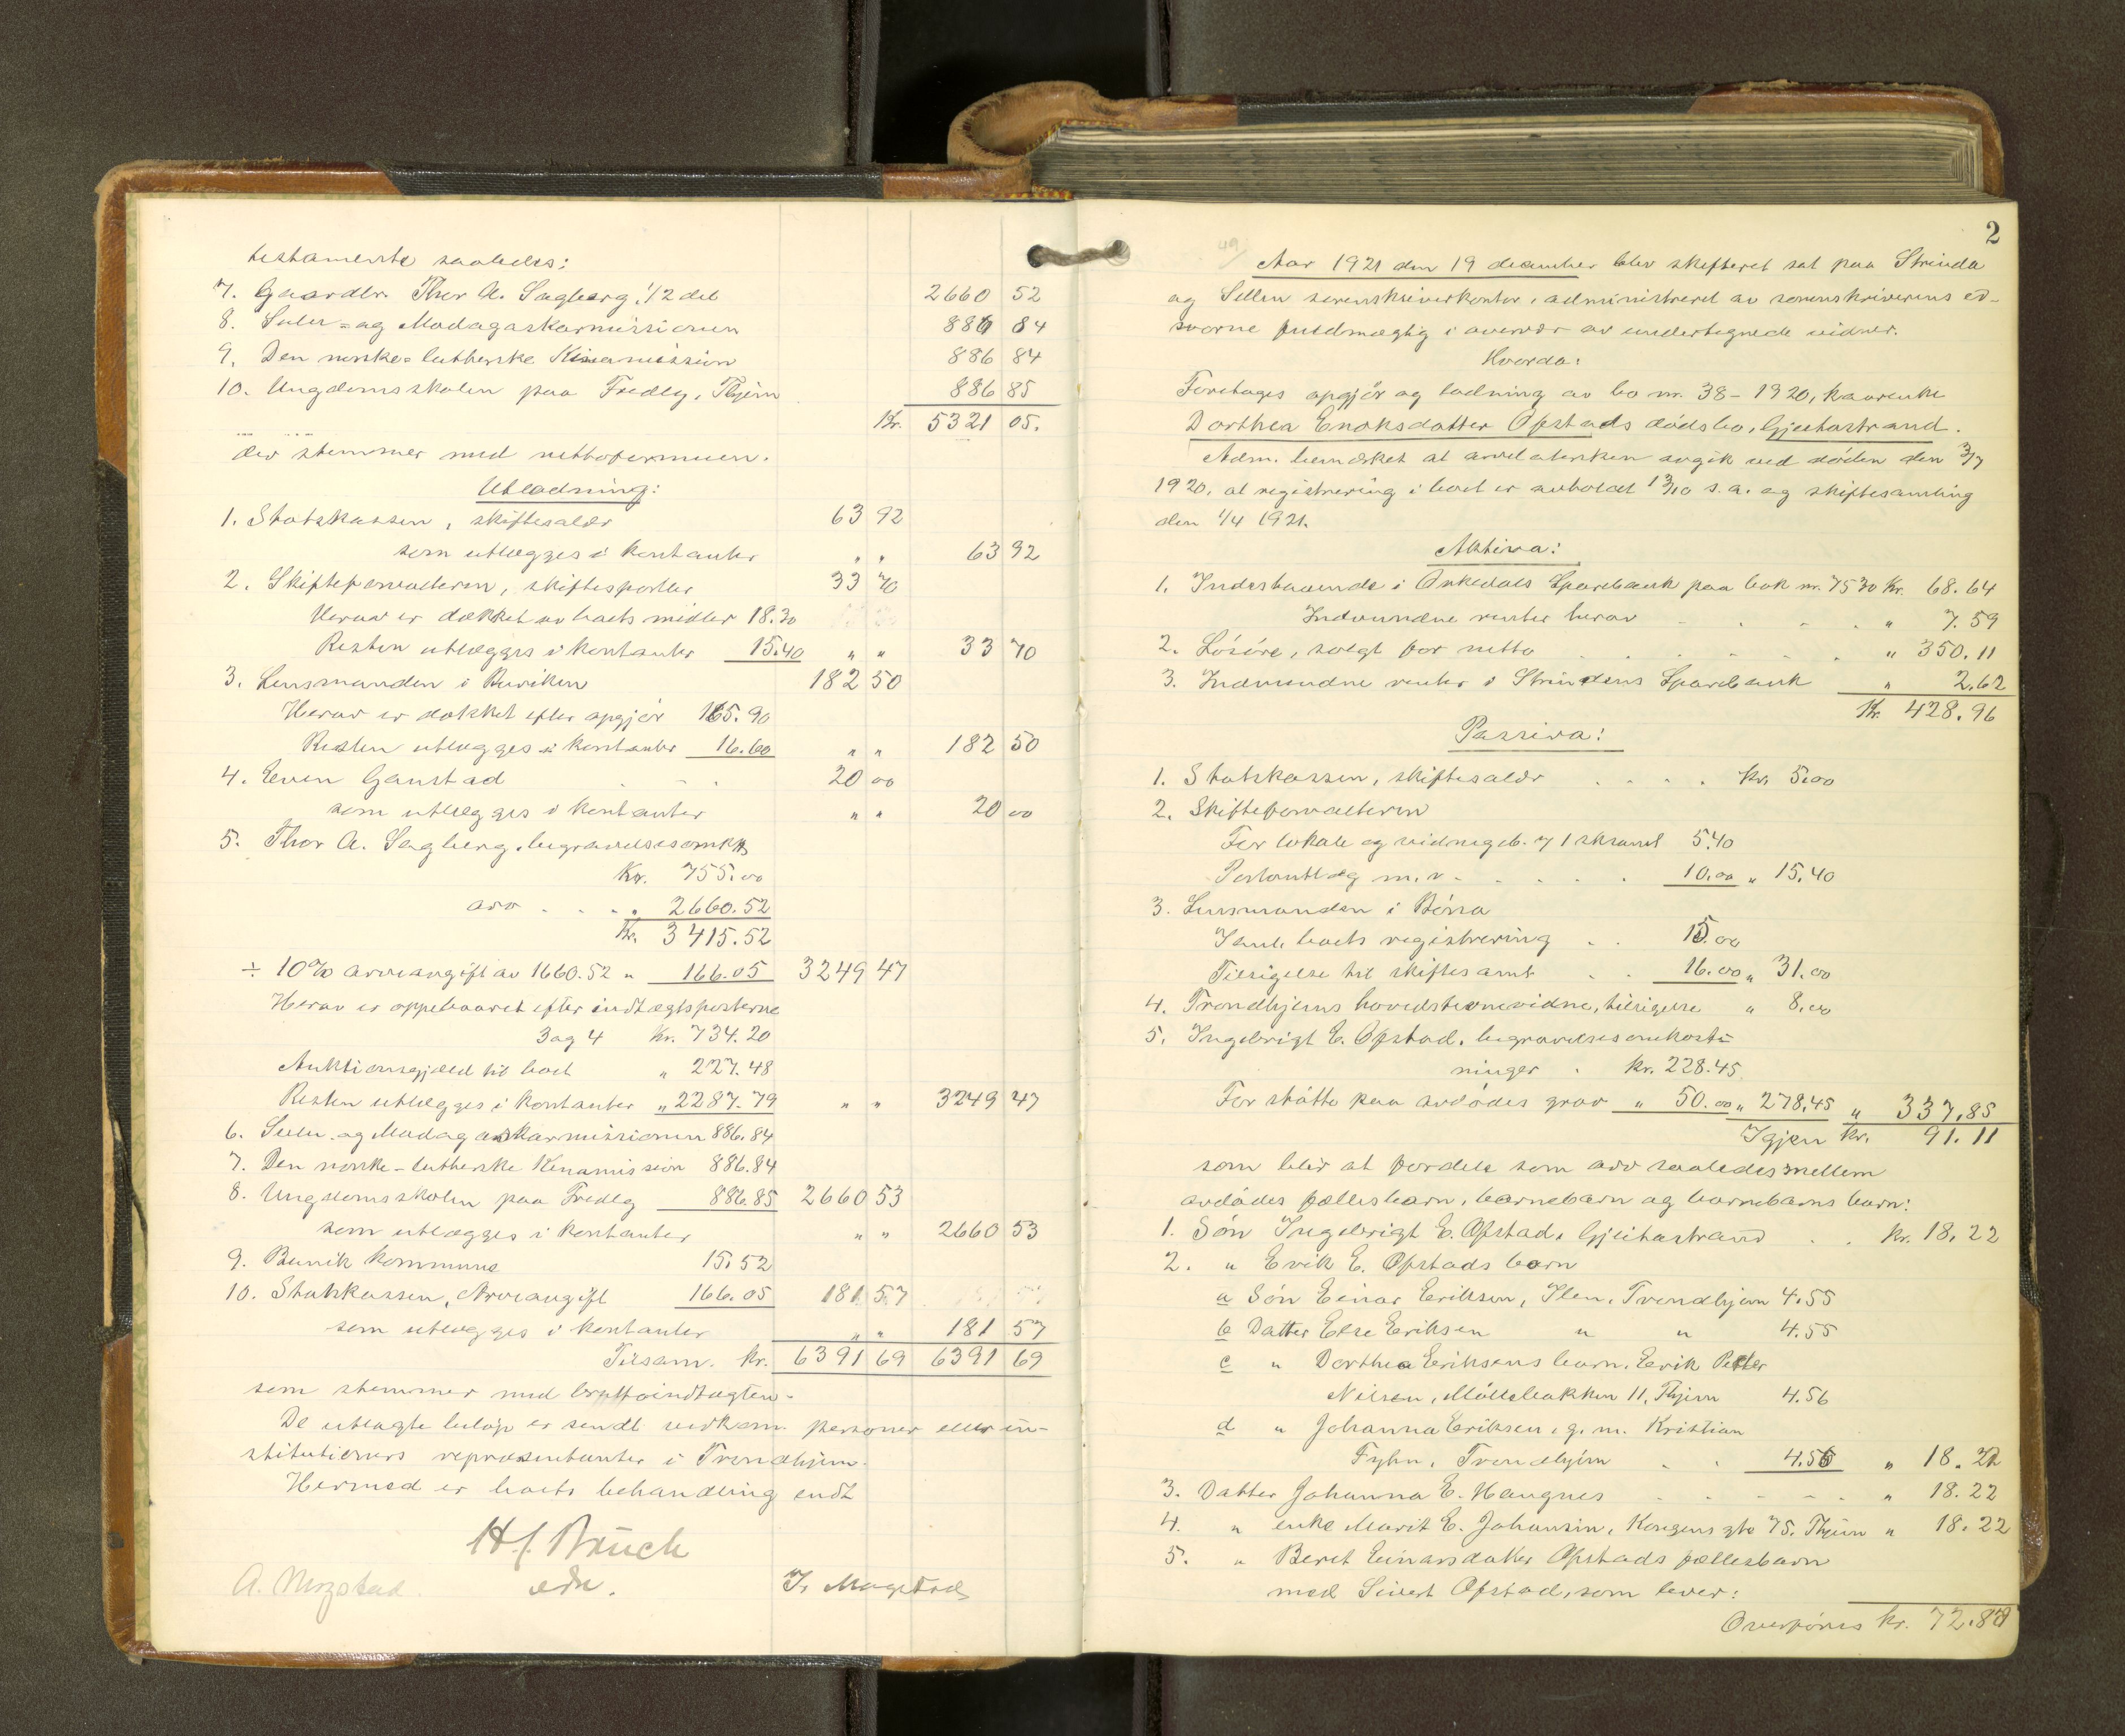 testamente saaledes:
7. Gaardbr. Thor A. Sagberg, 1/2 del 2660 52
8. Sulu- og Madagaskarmissionen 886 84
9. Den norske-lutherske Kinamission 886 84
10. Ungdomsskolen paa Fredly, Thjem 886 85
Kr. 5321 05.
der stemmer med nettoformuen.
Utlodning:
1. Statskassen, skiftesalær 63 92
som utlægges i kontanter " " 63 92
2. Skifteforvalteren, skiftesportler 33 70
Herav er dækket av boets midler 18.30
Resten utlægges i kontanter 15.40 " " 33 70
3. Lensmanden i Buviken 182 50
Herav er dækket efter opgjør 165.90
Resten utlægges i kontanter 16.60 " " 182 50
4. Even Ganstad 20 00
som utlægges i kontanter " " 20 00
5. Thor A. Sagberg, begravelsesomk.
Kr. 755.00
arv " 2660.52
Kr. 3415.52
÷ 10% arveavgift av 1660.52 " 166.05 3249 47
Herav er oppebaaret efter indtægtsposterne
3 og 4 Kr. 734.20
Auktionsgjæld til boet " 227.48
Resten utlægges i kontanter " 2287.79 " " 3249 47
6. Sulu- og Madagaskarmissionen 886.84
7. Den norske-lutherske Kinamission 886.84
8. Ungdomsskolen paa Fredly 886.85 2660 53
som utlægges i kontanter " " 2660 53
9. Buvik kommune 15.52
10. Statskassen, Arveavgift 166.05 181 57
som utlægges i kontanter " " 181 57
Tilsam. kr. 6391 69 6391 69
som stemmer med bruttoindtægten.
De utlagte beløp er sendt vedkom. personer eller in-
stitutioners repræsentanter i Trondhjem.
Hermed er boets behandling endt
H. J. Bruch
A. Mogstad. edsv. Mogstad
2
49
Aar 1921 den 19 december blev skifteret sat paa Strinda
og Selbu sorenskriverkontor, administreret av sorenskriverens ed-
svorne fuldmægtig i overvær av undertegnede vidner.
Hvorda:
Foretages opgjør og lodning av bo nr. 38 - 1920, kaarenke
Dorthea Enoksdatter Opstads dødsbo, Gjeitastrand.
Adm. bemerket at arveladersken avgik ved døden den 3/7
1920, at registrering i boet er avholdt 13/10 s.a. og skiftesamling
den 1/4 1921.
Aktiva:
1. Indestaaende i Orkedals Sparebank paa bok nr. 7530 Kr. 68.64
Indvundne renter herav " 7.59
2. Løsøre, solgt for netto " 350.11
3. Indvundne renter i Strindens Sparebank " 2.62
Kr. 428.96
Passiva:
1. Statskassen, skiftesalær kr. 5.00
2. Skifteforvalteren
For lokale og vidnegeb. 7 1 sksaml 5.40
Portoutlæg m.v. 10.00 " 15.40
3. Lensmanden i Børsa
Saml. boets registrering 15.00
Tilsigelse til skiftesaml 16.00 " 31.00
4. Trondhjems hovedstevnevidne, tilsigelse " 8.00
5. Ingebrigt E. Opstad, begravelsesomkost-
ninger kr. 228.45
For støtte paa avdødes grav " 50.00 " 278.45 " 337.85
Igjen kr. 91.11
som blir at fordele som arv saaledes mellem
avdødes fællesbarn, barnebarn og barnebarns barn:
1. Søn Ingebrigt E. Opstad, Gjeitastrand kr. 18.22
2. " Erik E. Opstads barn
a Søn Einar Eriksen, Ilen, Trondhjem 4.55
b Datter Else Eriksen " " 4.55
c " Dorthea Eriksens barn, Erik Petter
Nilsen, Møllebakken 11, Thjem 4.56
d " Johanna Eriksen, g. m. Kristian
Fyhn, Trondhjem 4.56 " 18.22
3. Datter Johanna E. Haugnes " 18.22
4. " enke Marit E. Johansen, Kongens gt 75, Thjem " 18.22
5. " Beret Einarsdatter Opstads fællesbarn
med Sivert Opstad, som lever:
Overføres kr. 72.88